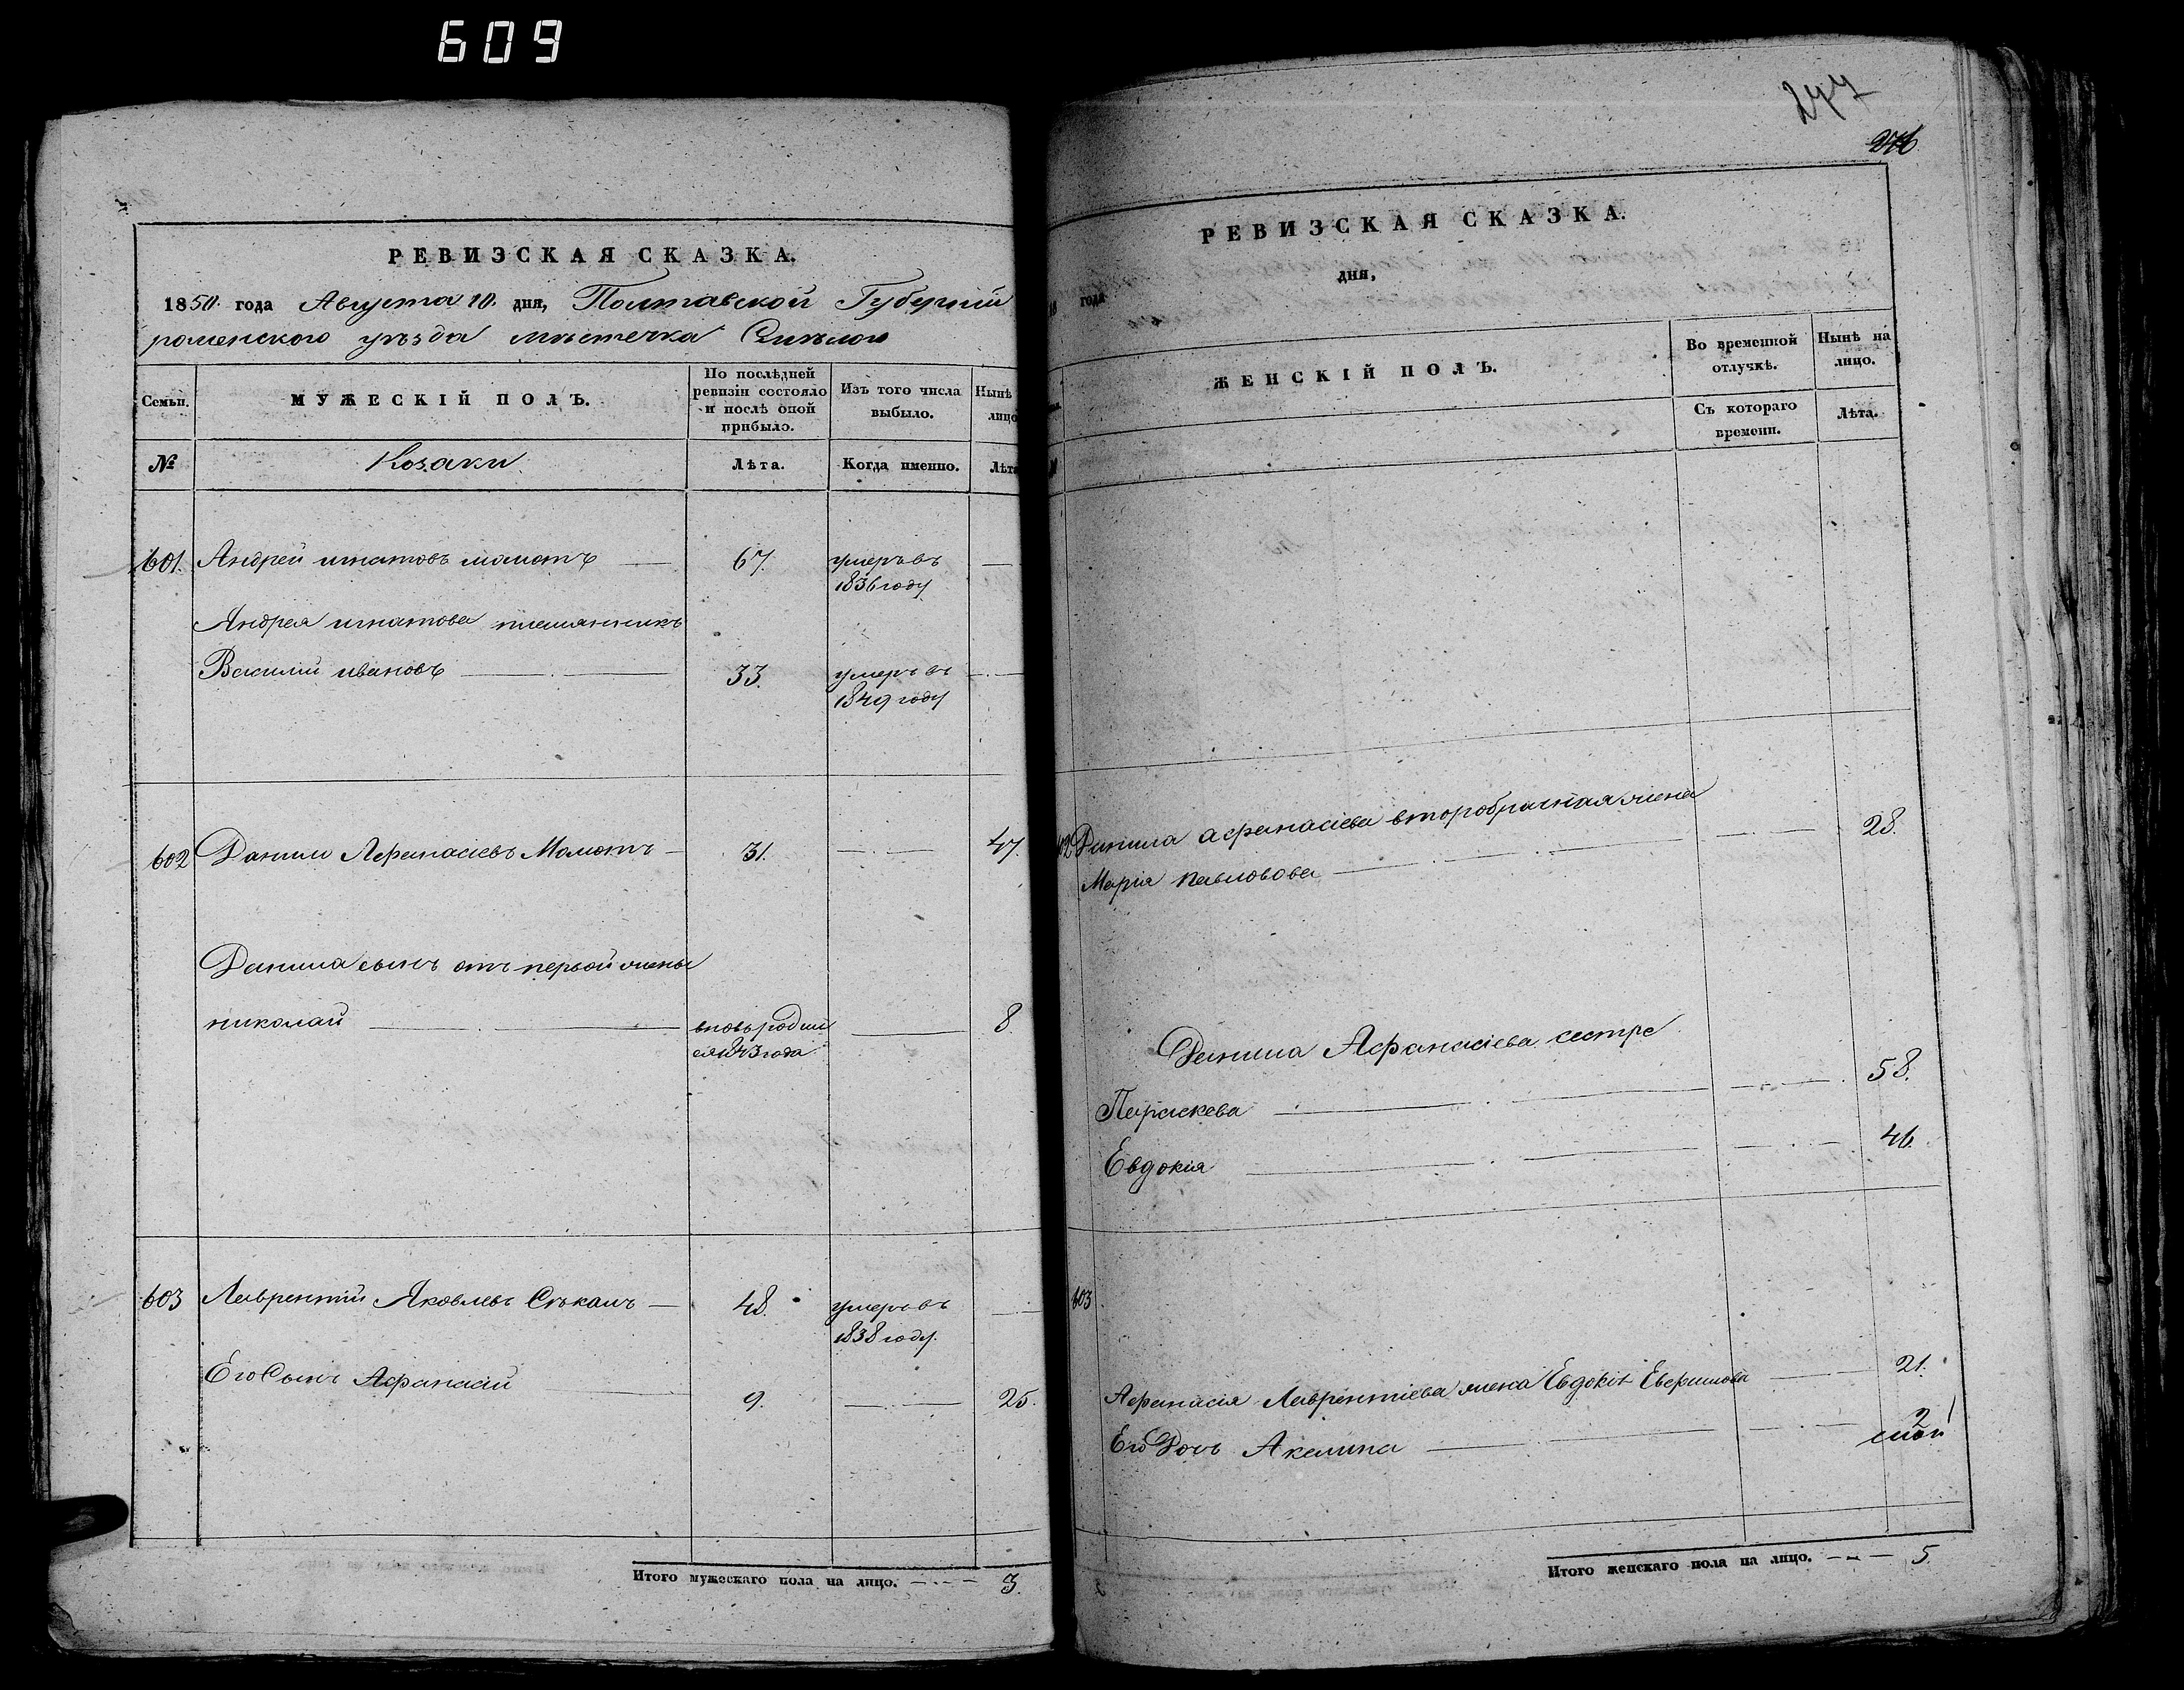 609
РЕВИЗСКАЯ СКАЗКА.
1850. года Августа 10. дня, Полтавской Губерніи
роменского уѣзда мѣстечка
Семьи.
МУЖЕСКІЙ ПОЛЪ.
По послѣдней ревизіи состояло и послѣ оной прибыло.
Изъ того числа выбыло.
Нынѣ лицо
№
Козаки
Лѣта.
Когда именно.
Лѣта
601. Андрей игнатовъ момотъ 67. умеръ въ
1836 году
Андрея игнатова племянникъ
Василий ивановъ 33. умеръ въ
1849 году
602 Данило Афанасіевъ Момотъ 31. 47.
Данила сынъ отъ первой жены
николай вновь родил 8.
ся 1843 года
603 Лаврентий Яковлевъ Сѣкачъ 48. умеръ въ
1838 году.
Его Сынъ Афанасий 9. 25.
Итого мужескаго пола на лицо. 3.
277
276
РЕВИЗСКАЯ СКАЗКА.
18 года дня,
ЖЕНСКІЙ ПОЛЪ.
Во временной отлучкѣ.
Нынѣ на лицо.
Съ котораго времени.
Лѣта.
602 Данила афанасіева второбрачная жена 28.
Марія павловова
Данила Афанасіева сестре
Параскева 58.
Евдокія 46.
603
Афанасія Лаврентіева жена Евдокія 21.
Его Дочь Акилина 2
Итого женскаго пола на лицо. 5.